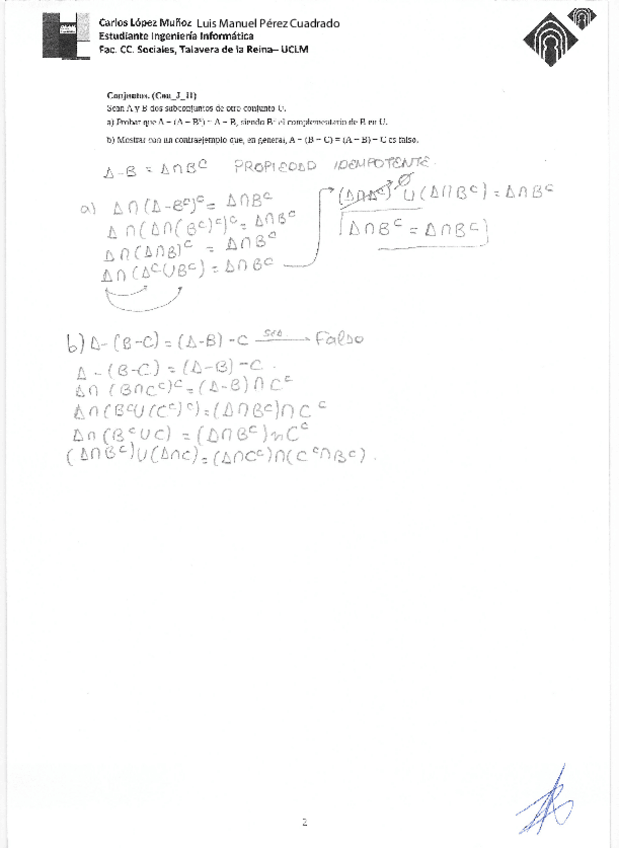 Carlos López Muñoz Luis Manuel Pérez Cuadrado
Estudiante Ingeniería Informática
Fac. CC. Sociales, Talavera de la Reina– UCLM
Conjuntos. (Con_J_11)
Sean A y B dos subconjuntos de otro conjunto U.
a) Probar que A − (A − Bᶜ) = A − B, siendo Bᶜ el complementario de B en U.
b) Mostrar con un contraejemplo que, en general, A − (B − C) = (A − B) − C es falso.
A-B = A∩Bᶜ PROPIEDAD IDEMPOTENTE.
a) A∩(A-Bᶜ)ᶜ = A∩Bᶜ
A∩(A∩(Bᶜ)ᶜ)ᶜ = A∩Bᶜ
A∩(A∩B)ᶜ = A∩Bᶜ
A∩(Aᶜ∪Bᶜ) = A∩Bᶜ
(A∩Aᶜ) ∅ ∪(A∩Bᶜ) = A∩Bᶜ
A∩Bᶜ = A∩Bᶜ
b) A-(B-C) = (A-B)-C → Falso
A-(B-C) = (A-B)-C.
A∩(B∩Cᶜ)ᶜ = (A-B)∩Cᶜ
A∩(Bᶜ∪(Cᶜ)ᶜ) = (A∩Bᶜ)∩Cᶜ
A∩(Bᶜ∪C) = (A∩Bᶜ)∩Cᶜ
(A∩Bᶜ)∪(A∩C) = (A∩Cᶜ)∩(Cᶜ∩Bᶜ).
2